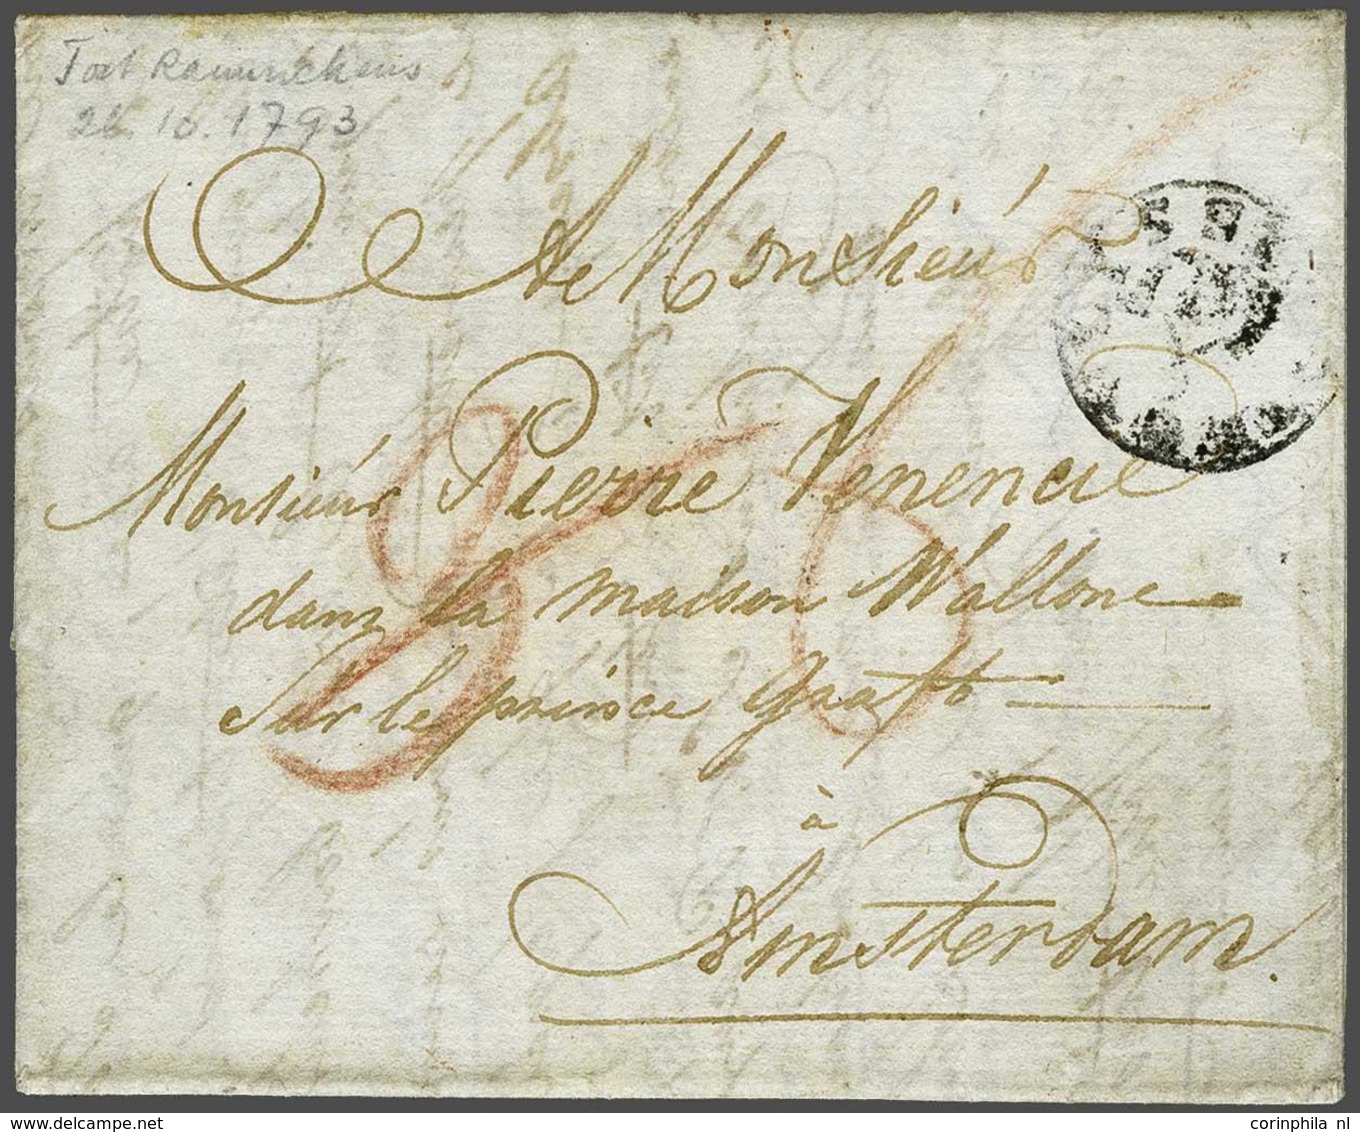 Fort Rammekens
26.10.1793
A Monsieur
Monsieur Pierre Venencie
dans la maison Wallone
Sur le prince graft
à
Amsterdam.
delcampe.net
corinphila nl